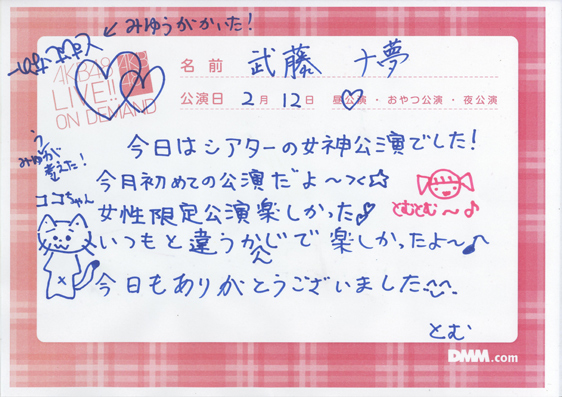 みゆうがかいた!
AKB48
LIVE!!
ON DEMAND
名前 武藤 十夢
公演日 2月 12日 昼公演・おやつ公演・夜公演
今日はシアターの女神公演でした!
みゆうが
考えた!
今月初めての公演だよ〜つく☆
ココちゃん
女性限定公演楽しかった♪
とむとむ〜♪
いつもと違うかんじで楽しかったよ〜♪
今日もありがとうございました^^
とむ
DMM.com